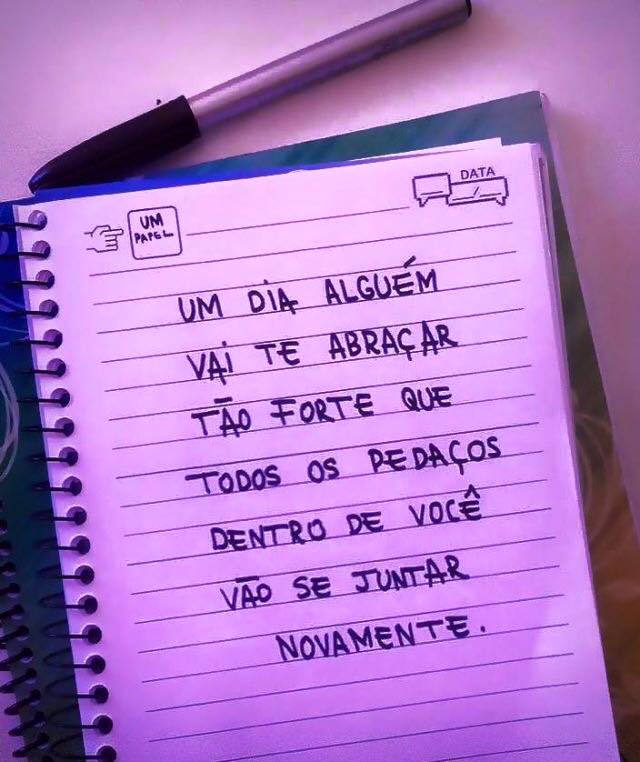 DATA
UM
PAPEL
UM DIA ALGUÉM
VAI TE ABRAÇAR
TÃO FORTE QUE
TODOS OS PEDAÇOS
DENTRO DE VOCÊ
VÃO SE JUNTAR
NOVAMENTE.